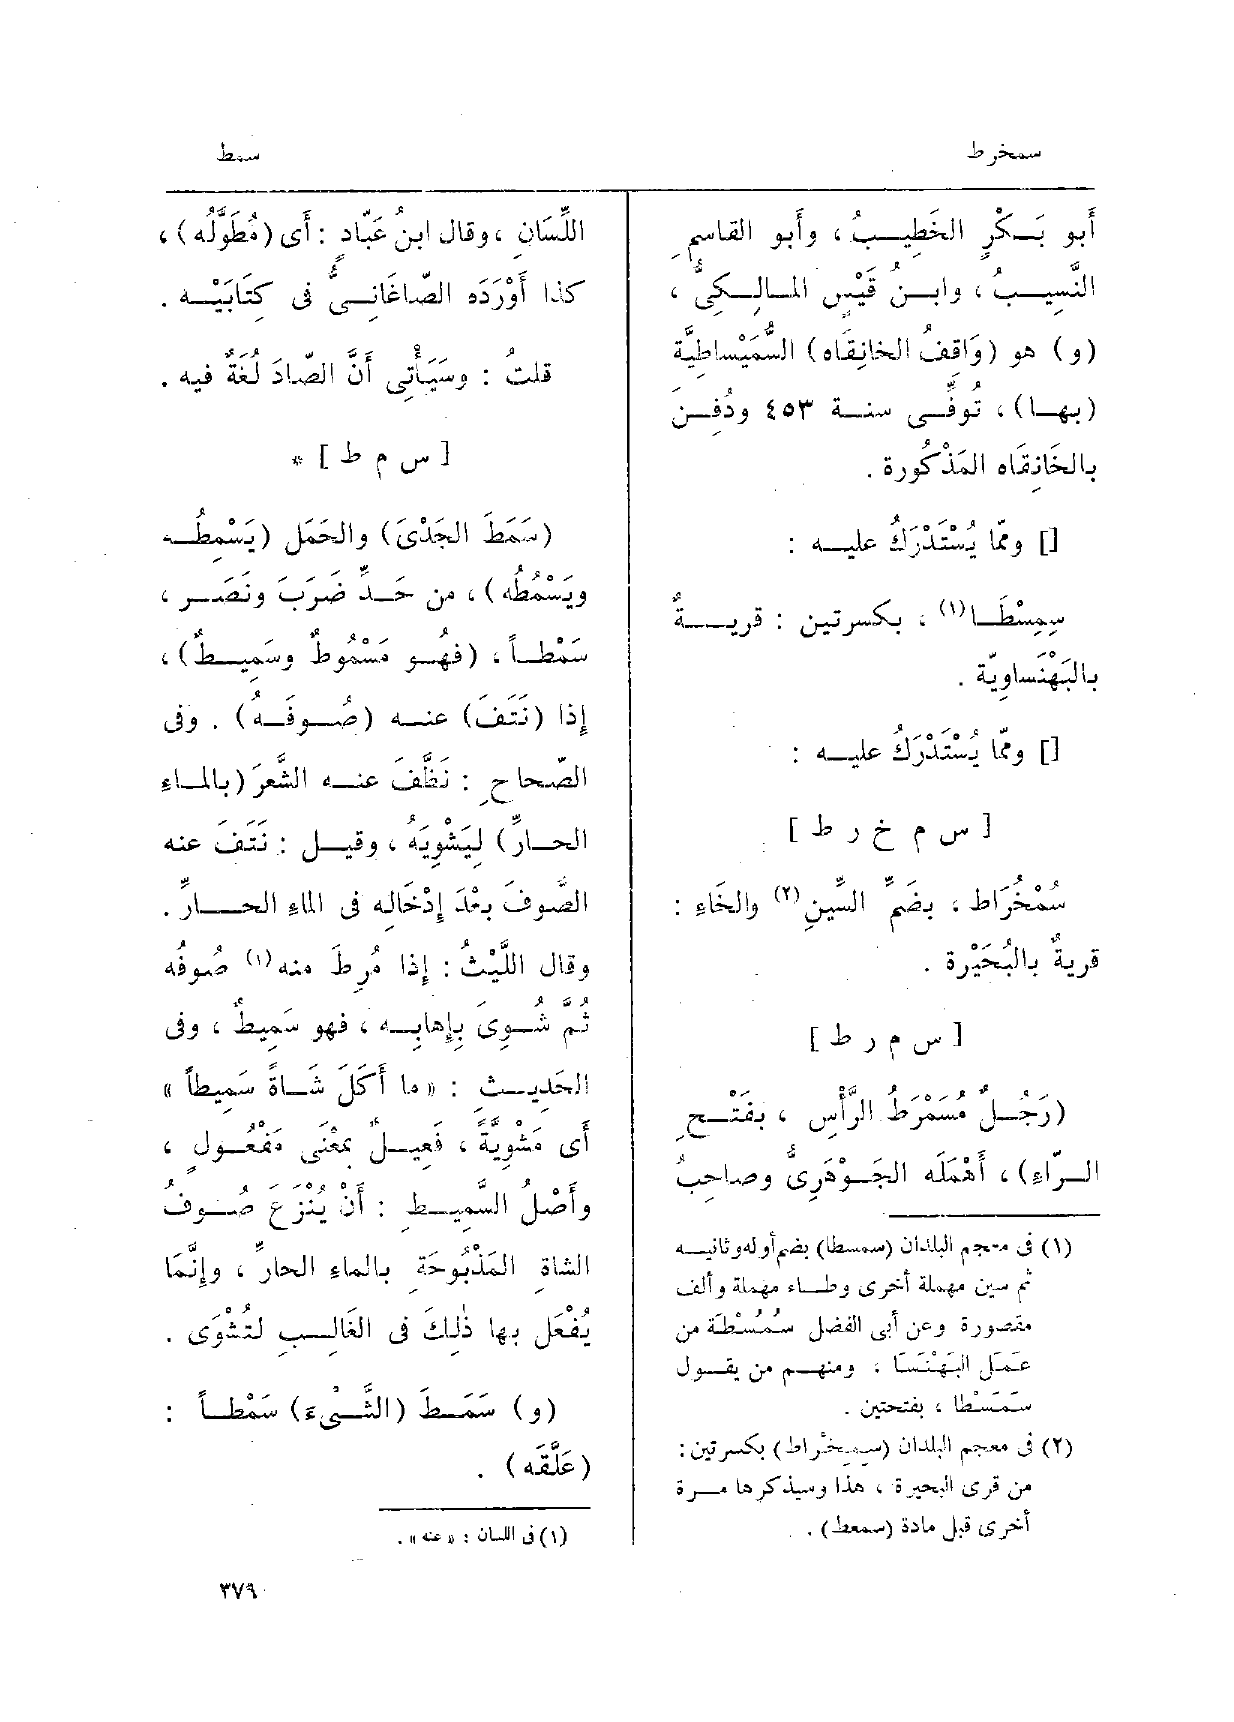 سمخرط
سمط
أبو بَـكْرٍ الخَطِيـبُ ، وأَبو القاسمِ
النَّسِيـبُ ، وابـنُ قَيْسٍ المـالِـكىُّ ،
(و) هو (وَاقِفُ الخانِقَاه) السُّمَيْساطِيَّة
(بهـا) ، تُوفِّـى سنـة ٤٥٣ ودُفِـنَ
بالخَانِقَاه المَذْكُورة .
[] ومّا يُسْتَدْرَكُ عليـه :
سِمِسْطَـا(١) ، بكسرتين : قريـةٌ
بالبَهْنَساوِيّة .
[] ومّا يُسْتَدْرَكُ عليـه :
[ س م خ ر ط ]
سُمْخُرَاط ، بضَمِّ السِّينِ(٢) والخَاءِ :
قريةٌ بالبُحَيْرة .
[ س م ر ط ]
(رَجُـلٌ مُسَمْرَطُ الرَّأْسِ ، بفَتْـحِ
الـرّاءِ) ، أَهْمَلَه الجَـوْهَرِىُّ وصاحِبُ
(١) فى معجم البلدان (سمسطا) بضم أوله وثانيـه
ثم سين مهملة أخرى وطـاء مهملة وألف
مقصورة وعن أبى الفضل سُمُسْطَة من
عَمَـل البَهْنَسَـا ، ومنهـم من يقـول
سَمَسْطا ، بفتحتين .
(٢) فى معجم البلدان (سِمِخْراط) بكسرتين :
من قرى البحيرة ، هذا وسيذكرها مـرة
أخرى قبل مادة (سمعط) .
اللِّسَانِ ، وقال ابنُ عَبّادٍ : أَى (مُطَوَّلُه) ،
كذا أَوْرَدَه الصّاغَانِـىُّ فى كِتَابَيْـه .
قلتُ : وسَيَأْتِى أَنَّ الصّادَ لُغَةٌ فيه .
[ س م ط ] *
(سَمَطَ الجَدْىَ) والحَمَل (يَسْمِطُـه
ويَسْمُطُه) ، من حَـدِّ ضَرَبَ ونَصَـر ،
سَمْطـاً ، (فهُـو مَسْمُوطٌ وسَمِيـطٌ) ،
إِذا (نَتَفَ) عنـه (صُـوفَـهُ) . وفى
الصّحاحِ : نَظَّفَ عنـه الشَّعرَ (بالمـاءِ
الحـارِّ) لِيَشْوِيَهُ ، وقيـل : نَتَفَ عنه
الصُّوفَ بعْدَ إِدْخَالِه فى الماءِ الحـارِّ .
وقال اللَّيْثُ : إِذا مُرِطَ منه(١) صُوفُه
ثُمَّ شُـوِىَ بإِهابِـه ، فهو سَمِيطٌ ، وفى
الحَديـث : « ما أَكَلَ شَـاةً سَمِيطاً »
أَى مَشْوِيَّةً ، فَعِيـلٌ بمَعْنَى مَفْعُـولٍ ،
وأَصْلُ السَّمِيـطِ : أَنْ يُنْزَعَ صُـوفُ
الشاةِ المَذْبُوحَةِ بالماءِ الحارِّ ، وإِنَّمَا
يُفْعَل بها ذٰلِكَ فى الغَالِـبِ لتُشْوَى .
(و) سَمَـطَ (الشَّـىْءَ) سَمْطـاً :
(عَلَّقَه) .
(١) فى اللسان : « عنه » .
٣٧٩